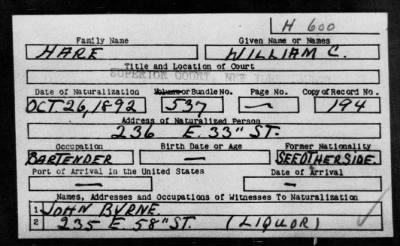 H 600
Family Name Given Name or Names
HARE WILLIAM C.
Title and Location of Court
SUPERIOR COURT, NEW YORK COUNTY
Date of Naturalization Volume or Bundle No. Page No. Copy of Record No.
OCT 26, 1892 537 — 194
Address of Naturalized Person
236 E. 33" ST.
Occupation Birth Date or Age Former Nationality
BARTENDER — SEE OTHERSIDE.
Port of Arrival in the United States Date of Arrival
— —
Names, Addresses and Occupations of Witnesses To Naturalization
1 JOHN BYRNE
2 235 E. 58" ST. (LIQUOR)